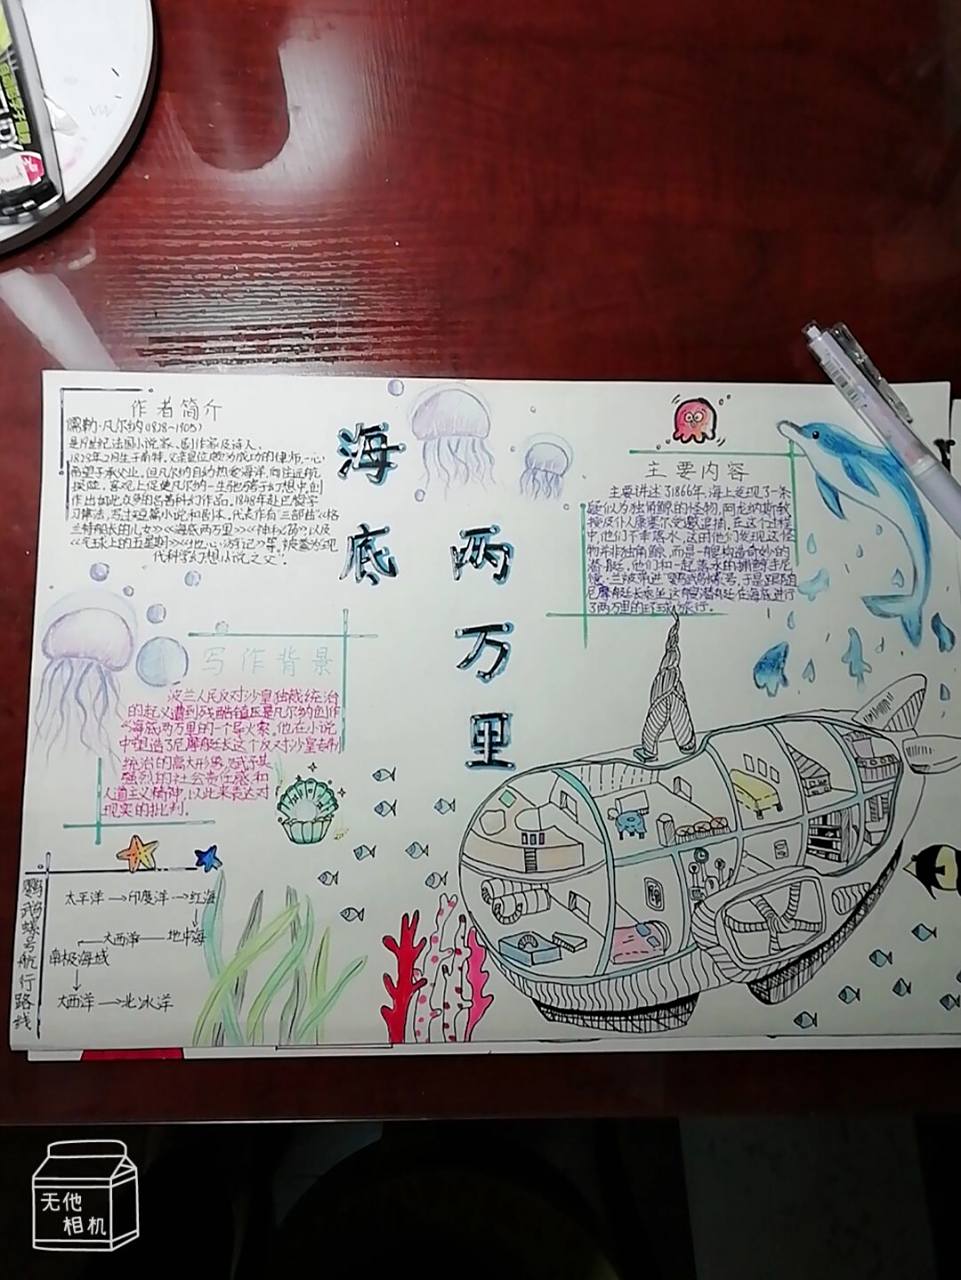 作者简介
儒勒·凡尔纳(1828-1905)
是19世纪法国小说家、剧作家及诗人。
1828年2月生于南特,父亲是位颇为成功的律师,一心
希望子承父业,但凡尔纳自幼热爱海洋,向往远航
探险,客观上促使凡尔纳一生驰骋于幻想中,创
作出如此众多的著名科幻作品。1848年赴巴黎学
习法律,写过短篇小说和剧本,代表作有三部曲《格
兰特船长的儿女》《海底两万里》《神秘岛》以及
《气球上的五星期》《地心游记》等,被誉为“现
代科学幻想小说之父”。
海底
两万里
主要内容
主要讲述了1866年,海上发现了一条
疑似为独角鲸的怪物,阿龙纳斯教
授及仆人康塞尔受邀追捕,在这个过程
中,他们不幸落水,这时他们发现这怪
物并非独角鲸,而是一艘构造奇妙的
潜艇,他们和一起落水的捕鲸手尼
德·兰被带进
尼摩艇长乘坐这艘潜艇在海底进行
了两万里的环球旅行。
写作背景
波兰人民反对沙皇独裁统治
的起义遭到残酷镇压是凡尔纳创作
《海底两万里的一个导火索。他在小说
中塑造了尼摩艇长这个反对沙皇专制
统治的高大形象,赋予其
强烈的社会责任感和
人道主义精神,以此来表达对
现实的批判。
鹦鹉螺号航行路线
太平洋→印度洋→红海
大西洋 地中海
南极海域
大西洋→北冰洋
无他
相机